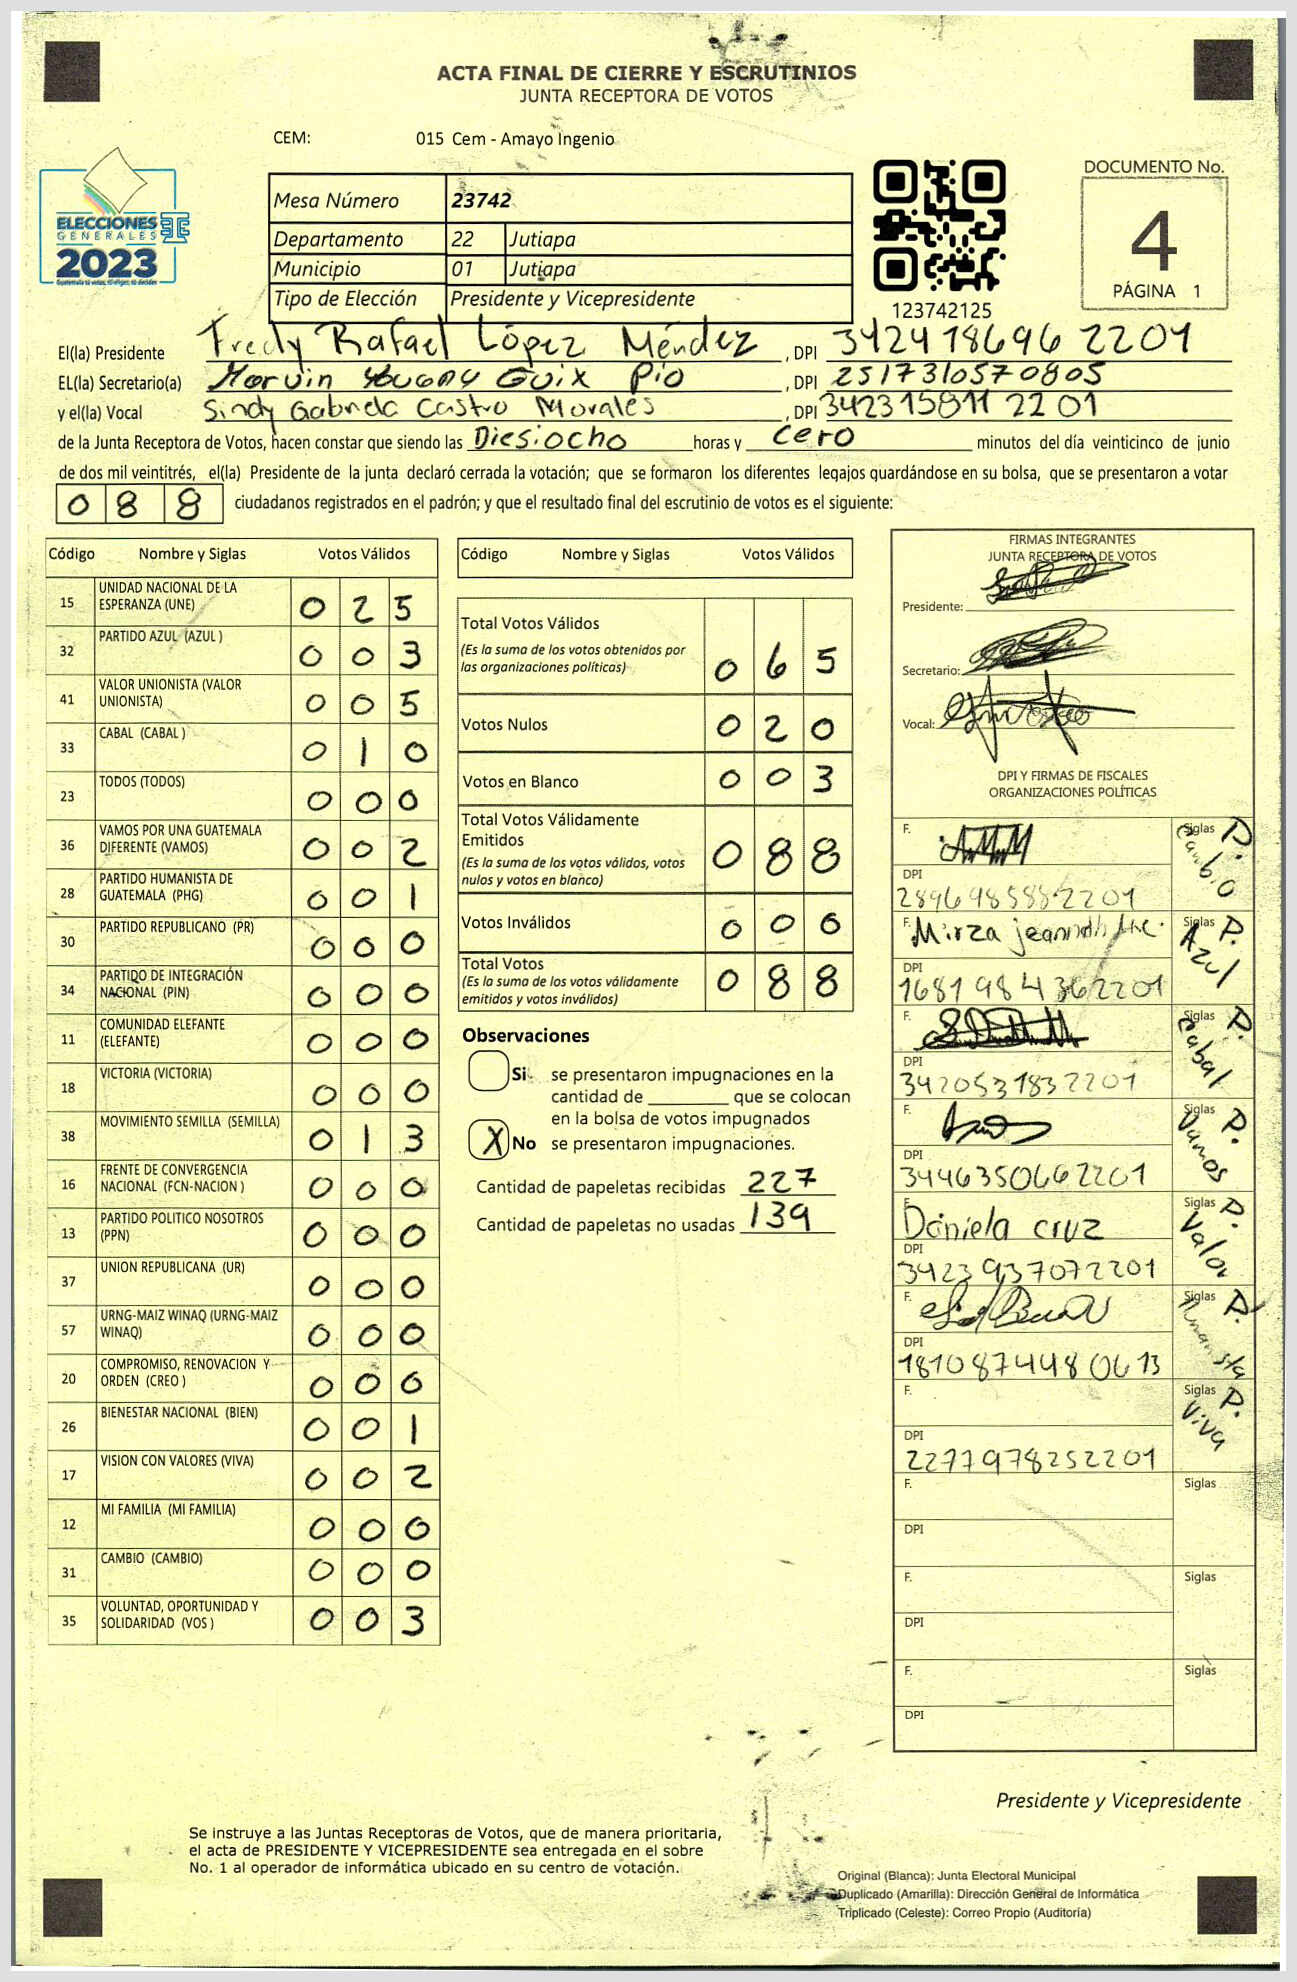 ACTA FINAL DE CIERRE Y ESCRUTINIOS
JUNTA RECEPTORA DE VOTOS
CEM: 015 Cem - Amayo Ingenio
ELECCIONES
GENERALES
2023
Mesa Número 23742
Departamento 22 Jutiapa
Municipio 01 Jutiapa
Tipo de Elección Presidente y Vicepresidente
123742125
DOCUMENTO No.
4
PÁGINA 1
El(la) Presidente Fredy Rafael López Méndez, DPI 3424186962201
EL(la) Secretario(a) Marvin Guix Pio, DPI 2517310570805
y el(la) Vocal Sindy Gabriela Castro Morales, DPI 3423158112201
de la Junta Receptora de Votos, hacen constar que siendo las Diesiocho horas y cero minutos del día veinticinco de junio
de dos mil veintitrés, el(la) Presidente de la junta declaró cerrada la votación; que se formaron los diferentes legajos quardándose en su bolsa, que se presentaron a votar
088 ciudadanos registrados en el padrón; y que el resultado final del escrutinio de votos es el siguiente:
Código Nombre y Siglas Votos Válidos
15 UNIDAD NACIONAL DE LA ESPERANZA (UNE) 025
32 PARTIDO AZUL (AZUL ) 003
41 VALOR UNIONISTA (VALOR UNIONISTA) 005
33 CABAL (CABAL ) 010
23 TODOS (TODOS) 000
36 VAMOS POR UNA GUATEMALA DIFERENTE (VAMOS) 002
28 PARTIDO HUMANISTA DE GUATEMALA (PHG) 001
30 PARTIDO REPUBLICANO (PR) 000
34 PARTIDO DE INTEGRACIÓN NACIONAL (PIN) 000
11 COMUNIDAD ELEFANTE (ELEFANTE) 000
18 VICTORIA (VICTORIA) 000
38 MOVIMIENTO SEMILLA (SEMILLA) 013
16 FRENTE DE CONVERGENCIA NACIONAL (FCN-NACION ) 000
13 PARTIDO POLITICO NOSOTROS (PPN) 000
37 UNION REPUBLICANA (UR) 000
57 URNG-MAIZ WINAQ (URNG-MAIZ WINAQ) 000
20 COMPROMISO, RENOVACION Y ORDEN (CREO ) 000
26 BIENESTAR NACIONAL (BIEN) 001
17 VISION CON VALORES (VIVA) 002
12 MI FAMILIA (MI FAMILIA) 000
31 CAMBIO (CAMBIO) 000
35 VOLUNTAD, OPORTUNIDAD Y SOLIDARIDAD (VOS ) 003
Código Nombre y Siglas Votos Válidos
Total Votos Válidos 065
(Es la suma de los votos obtenidos por
las organizaciones políticas)
Votos Nulos 020
Votos en Blanco 003
Total Votos Válidamente
Emitidos 088
(Es la suma de los votos válidos, votos
nulos y votos en blanco)
Votos Inválidos 000
Total Votos 088
(Es la suma de los votos válidamente
emitidos y votos inválidos)
Observaciones
Si se presentaron impugnaciones en la
cantidad de ________ que se colocan
en la bolsa de votos impugnados
X No se presentaron impugnaciones.
Cantidad de papeletas recibidas 227
Cantidad de papeletas no usadas 139
FIRMAS INTEGRANTES
JUNTA RECEPTORA DE VOTOS
Presidente:
Secretario:
Vocal:
DPI Y FIRMAS DE FISCALES
ORGANIZACIONES POLÍTICAS
F. Siglas P. Cambio
DPI 2896985882201
F. Mirza Siglas P. Azul
DPI 1681984362201
F. Siglas P. Cabal
DPI 3420531832201
F. Siglas P. Vamos
DPI 3446350662201
F. Daniela Cruz Siglas P. Valor
DPI 3423937072201
F. Siglas P. Humanista
DPI 1810874480613
F. Siglas P. Viva
DPI 2277978252201
F. Siglas
DPI
F. Siglas
DPI
F. Siglas
DPI
Presidente y Vicepresidente
Se instruye a las Juntas Receptoras de Votos, que de manera prioritaria,
el acta de PRESIDENTE Y VICEPRESIDENTE sea entregada en el sobre
No. 1 al operador de informática ubicado en su centro de votación.
Original (Blanca): Junta Electoral Municipal
Duplicado (Amarilla): Dirección General de Informática
Triplicado (Celeste): Correo Propio (Auditoría)